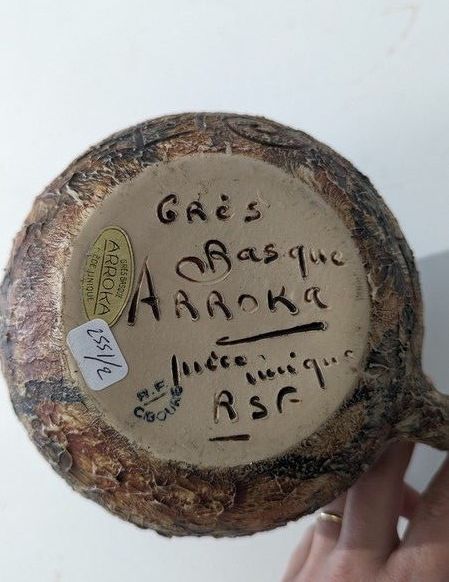 Grès
Basque
ARROKA
pièce unique
RSF
GRÈS BASQUE
ARROKA
PIÈCE UNIQUE
255/2
R.F.
CIBOURE